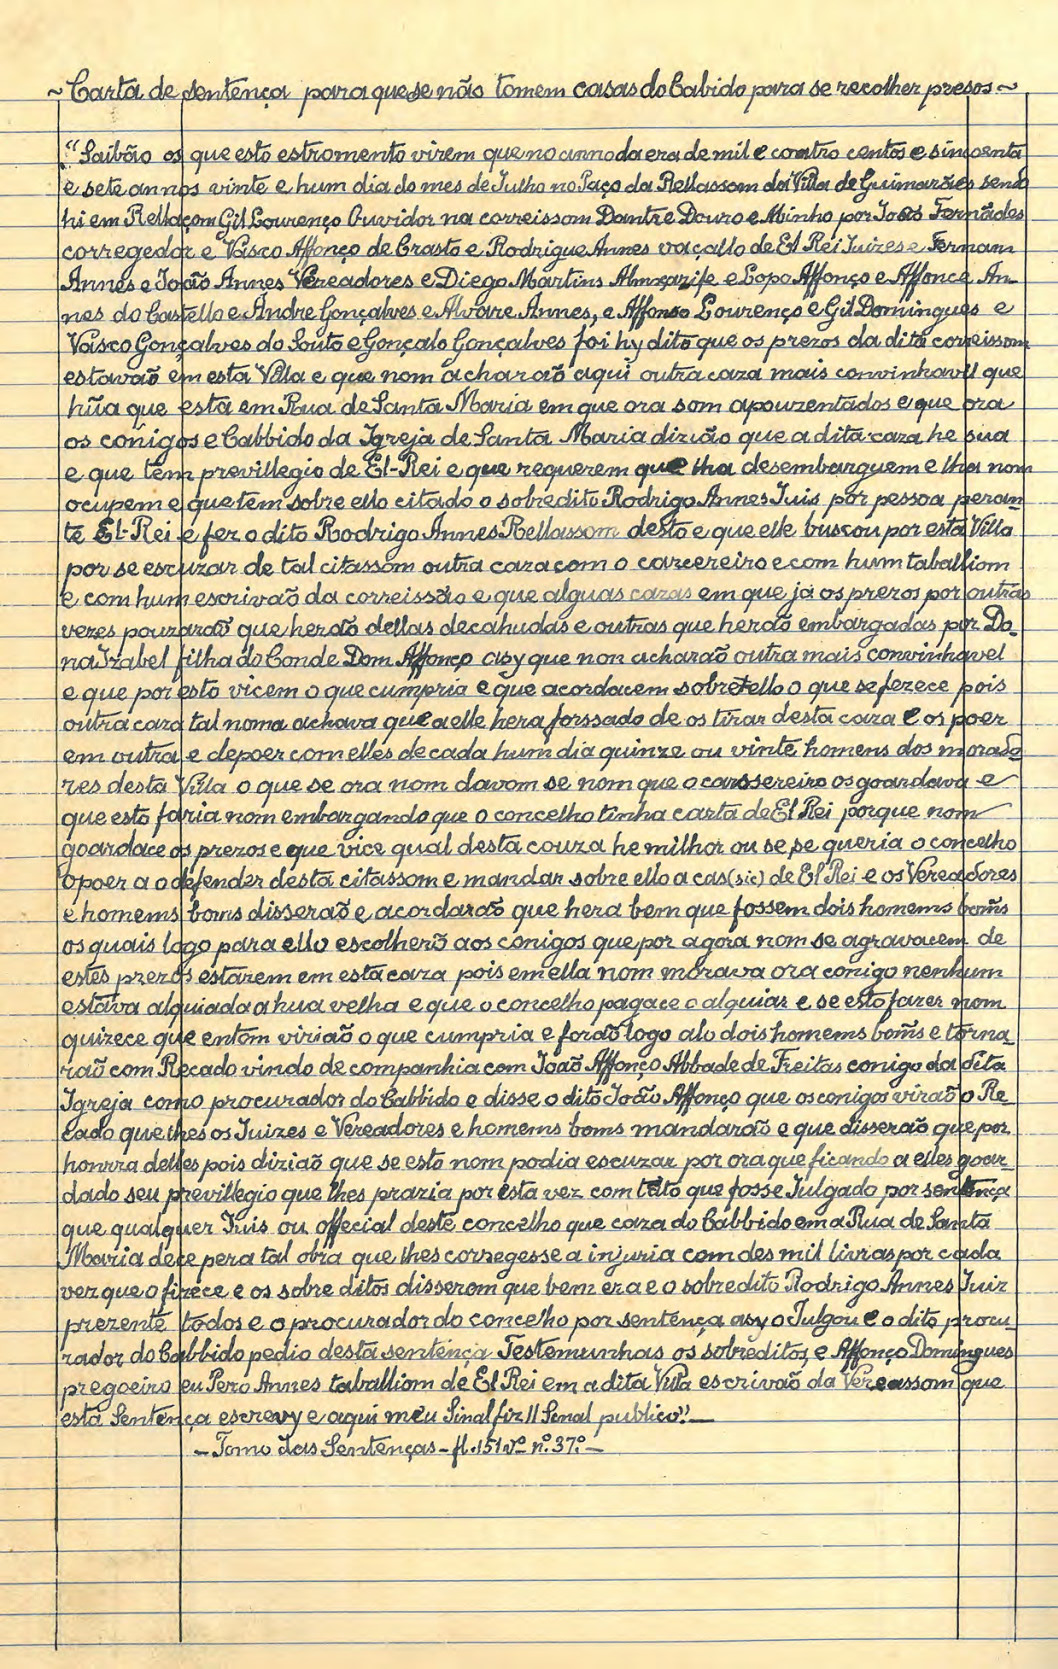 ~Carta de sentença para que se não tomem casas do Cabido para se recolher presos~
"Saibão os que esto estromento virem que no anno da era de mil e coatro centos e sincoenta
e sete annos vinte e hum dia do mes de Julho no Paço da Rellassom da Villa de Guimarães sendo
hi em Rellaçom Gil Lourenço Ouvidor na correissom Dantre Douro e Minho por João Fernãdes
corregedor e Vasco Affonço de Crasto e Rodrigue Annes vaçallo de El Rei Juizes e Fernam
Annes e João Annes Vereadores e Diego Martins Almxarife e Lopo Affonço e Affonce An-
nes do Castello e Andre Gonçalves e Alvare Annes, e Affonso Lourenço e Gil Domingues e
Vasco Gonçalves do Souto e Gonçalo Gonçalves foi hy dito que os prezos da dita correissom
estavaõ em esta Villa e que nom acharaõ aqui outra caza mais convinhavel que
hũa que esta em Rua de Santa Maria em que ora som apouzentados e que ora
os conigos e Cabbido da Igreja de Santa Maria diziaõ que a dita caza he sua
e que tem previllegio de El-Rei e que requerem que lha desembarguem e lha nom
ocupem e que tem sobre ello citado o sobredito Rodrigo Annes Juis por pessoa peran-
te El-Rei e fez o dito Rodrigo Annes Rellassom desto e que elle buscou por esta Villa
por se escuzar de tal citassom outra caza com o carcereiro e com hum taballiom
e com hum escrivaõ da correissão e que alguas cazas em que já os prezos por outras
vezes pouzaraõ que heraõ dellas decahudas e outras que heraõ embargadas por Do-
na Izabel filha do Conde Dom Affonço asy que non acharaõ outra mais convinhavel
e que por esto vicem o que cumpria e que acordacem sobretello o que se fezece pois
outra caza tal noma achava que a elle hera forssado de os tirar desta caza e os poer
em outra e depoer com elles de cada hum dia quinze ou vinte homens dos morado
res desta Villa o que se ora nom davom se nom que o carssereiro os goardava e
que esto faria nom embargando que o concelho tinha carta de El Rei porque nom
goardace os prezos e que vice qual desta couza he milhor ou se se queria o concelho
opoer a o defender desta citassom e mandar sobre ello a cas (sic) de El Rei e os Vereadores
e homems boms disseraõ e acordaraõ que hera bem que fossem dois homems boms
os quais logo para ello escolherõ aos conigos que por agora nom se agravacem de
estes prezos estarem em esta caza pois em ella nom morava ora conigo nenhum
estava alquiada a hua velha e que o concelho pagace o alquiar e se esto fazer nom
quizece que entom viriaõ o que cumpria e foraõ logo alo dois homems boms e torna_
raõ com Recado vindo de companhia com Joaõ Affonço Abbade de Freitas conigo da dita
Igreja como procurador do Cabbido e disse o dito João Affonço que os conigos viraõ o Re_
cado que lhes os Juizes e Vereadores e homems boms mandaraõ e que disseraõ que por
honrra delles pois diziaõ que se esto nom podia escuzar por ora que ficando a elles goar_
dado seu previllegio que lhes prazia por esta vez com tato que fosse Julgado por sentença
que qualquer Juis ou offecial deste concelho que caza do Cabbido em a Rua de Santa
Maria dece pera tal obra que lhes corregesse a injuria com des mil livras por cada
vez que o fizece e os sobre ditos disserom que bem era e o sobredito Rodrigo Annes Juiz
prezente todos e o procurador do concelho por sentença asy o Julgou e o dito procu_
rador do Cabbido pedio desta sentença Testemunhas os sobreditos, e Affonço Domingues
pregoeiro eu Pero Annes taballiom de El Rei em a dita Villa escrivaõ da Vereassom que
esta Sentença escrevy e aqui meu Sinal fiz // Senal publico".—
— Tomo das Sentenças - fl. 151 vº nº. 37º. —